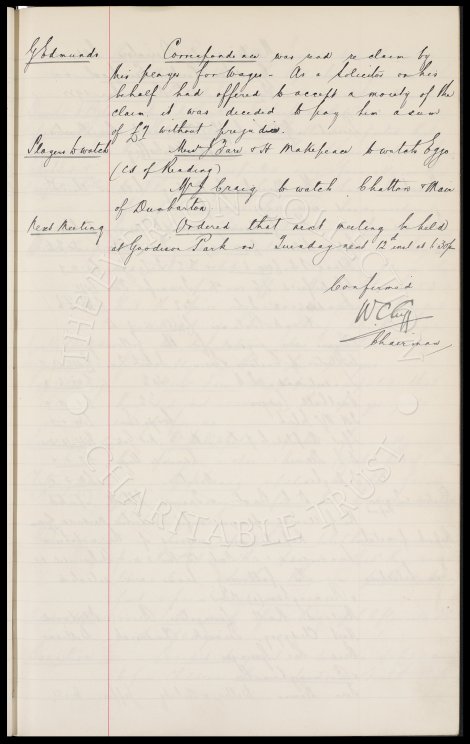 G Edmunds Correspondence was read re claim by
this player for wages - As a solicitor on his
behalf had offered to accept a moiety of the
claim it was decided to pay him a sum
of £7 without prejudice.
Players to watch Messrs J Fare & H Makepeace to watch Eggo
(CH of Reading)
Mr J Craig to watch Chatton & Main
of Dumbarton
Next Meeting Ordered that next meeting be held
at Goodison Park on Tuesday next 12 inst at 6.30pm
Confirmed
W C Cuff
Chairman
THE EVERTON COLLECTION
CHARITABLE TRUST